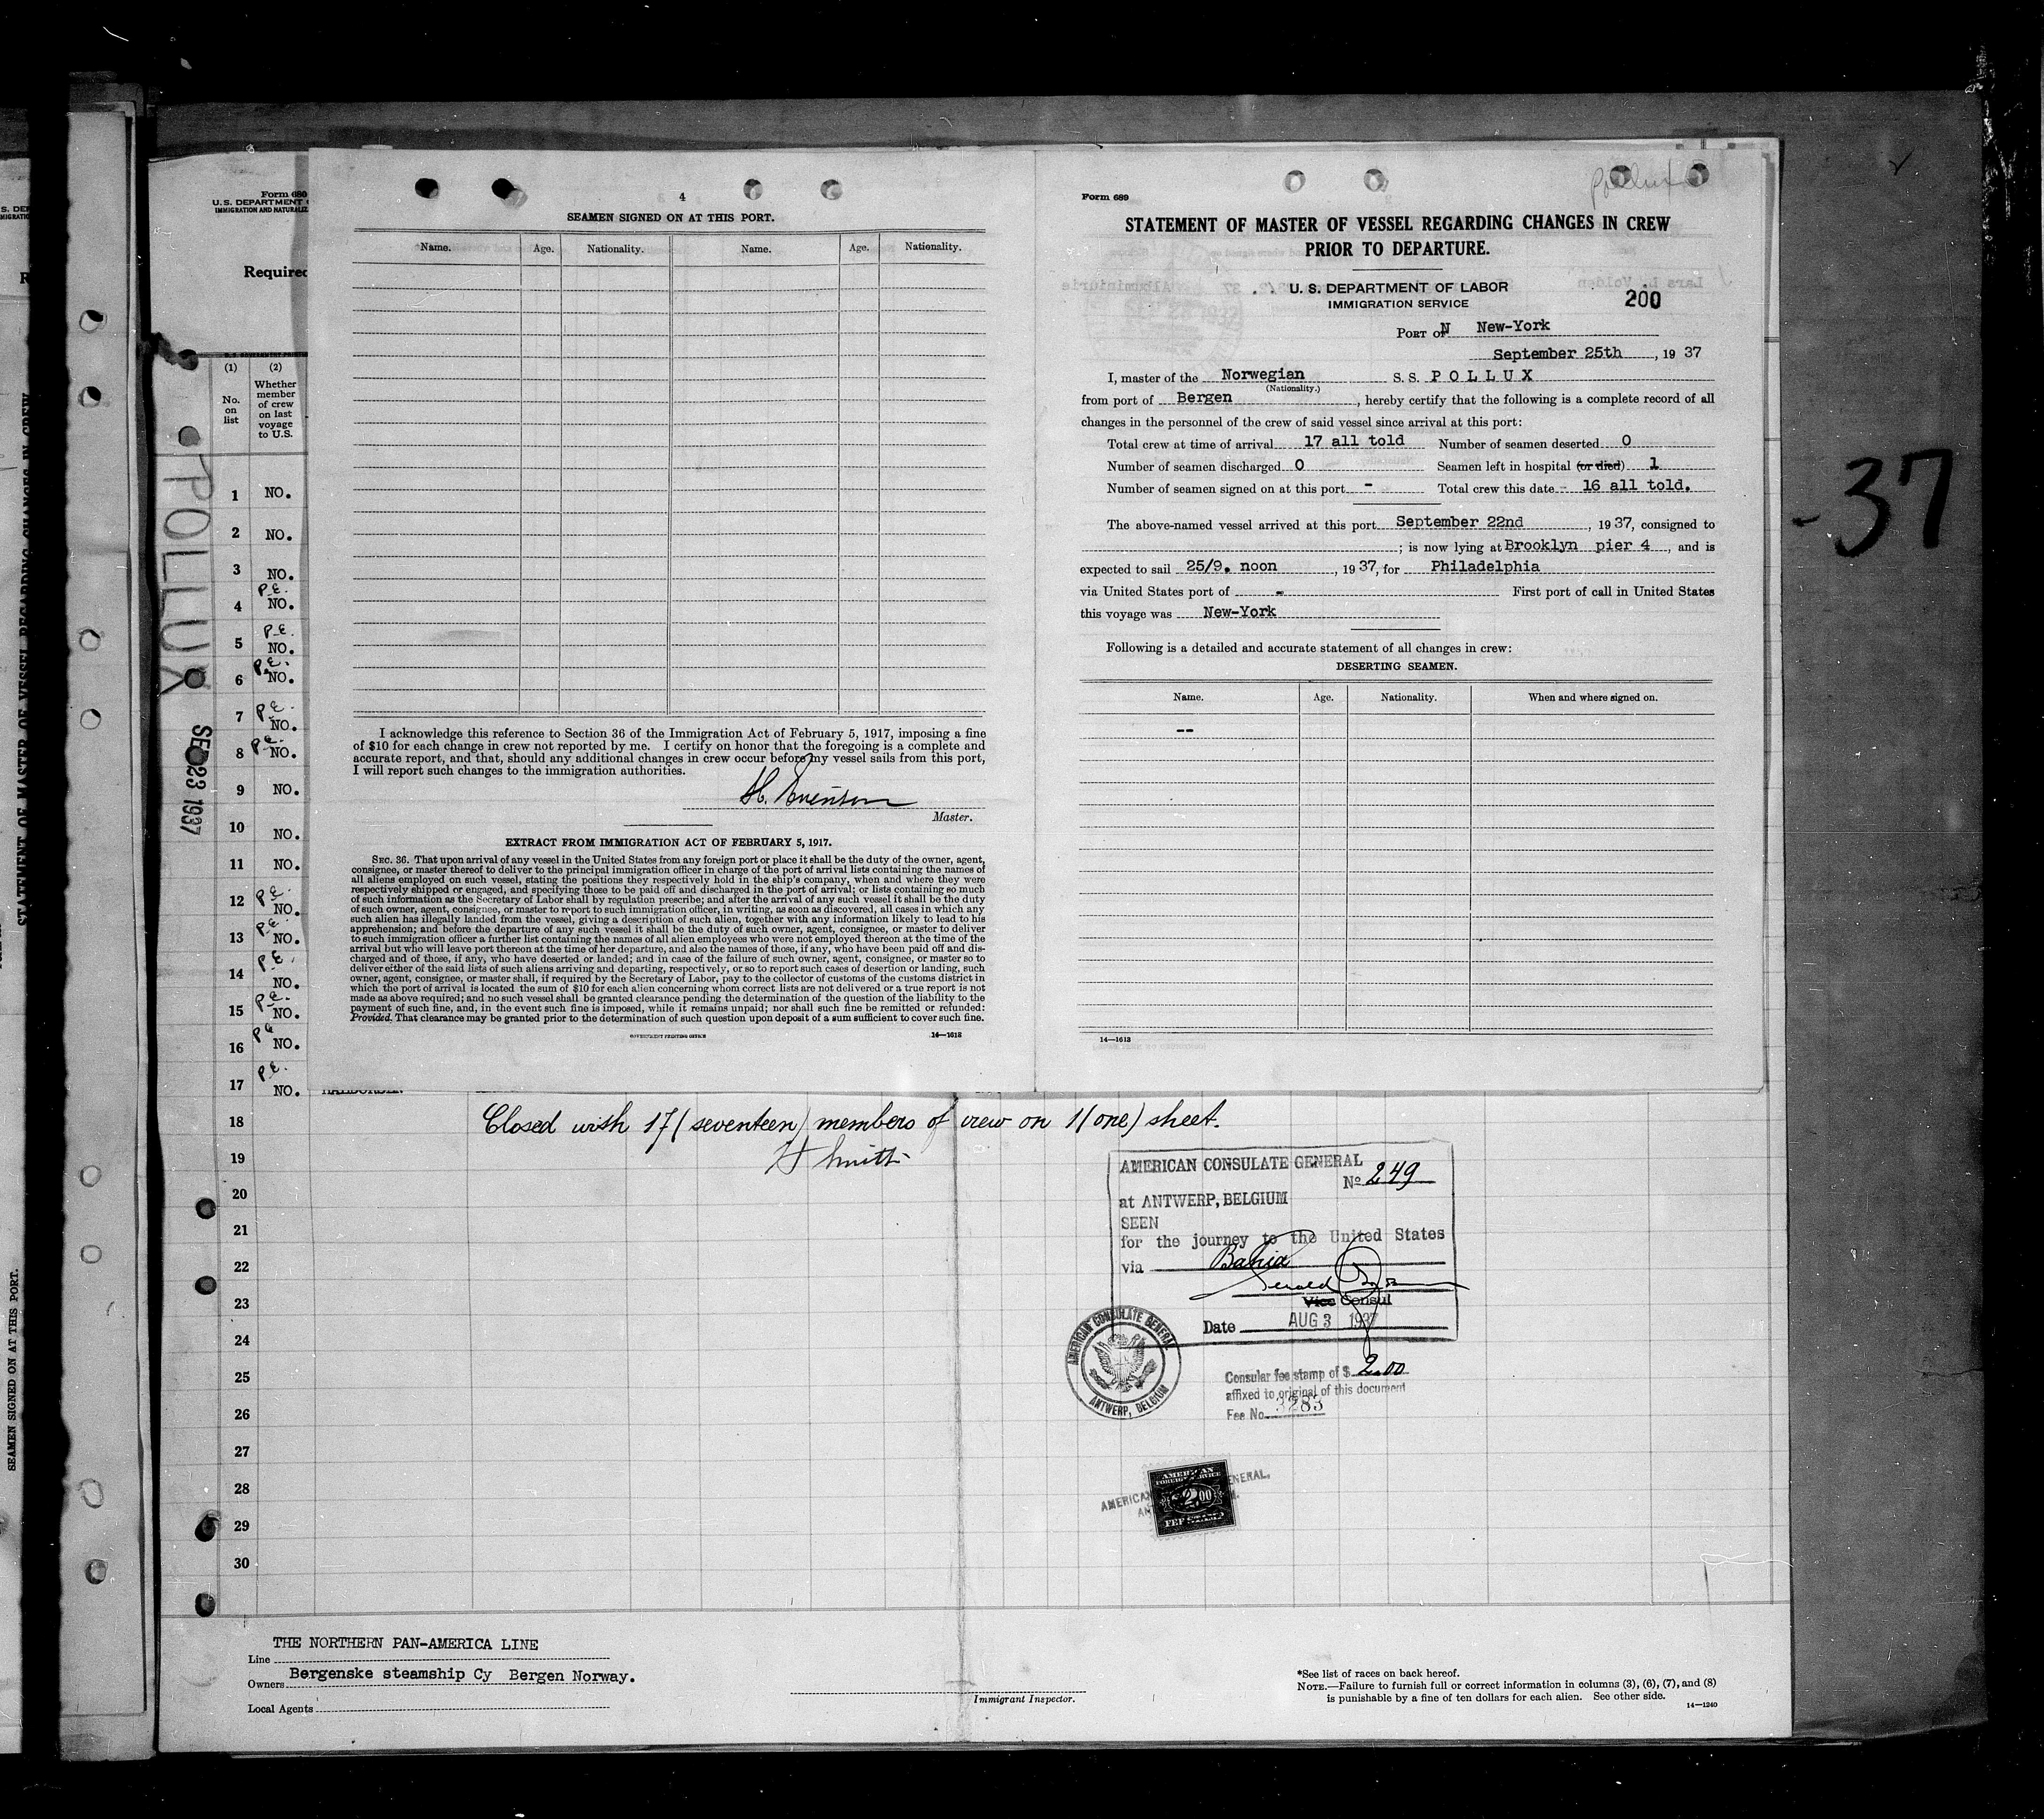 4
SEAMEN SIGNED ON AT THIS PORT.
Name. Age. Nationality. Name. Age. Nationality.
I acknowledge this reference to Section 36 of the Immigration Act of February 5, 1917, imposing a fine
of $10 for each change in crew not reported by me. I certify on honor that the foregoing is a complete and
accurate report, and that, should any additional changes in crew occur before my vessel sails from this port,
I will report such changes to the immigration authorities.
Master.
EXTRACT FROM IMMIGRATION ACT OF FEBRUARY 5, 1917.
SEC. 36. That upon arrival of any vessel in the United States from any foreign port or place it shall be the duty of the owner, agent,
consignee, or master thereof to deliver to the principal immigration officer in charge of the port of arrival lists containing the names of
all aliens employed on such vessel, stating the positions they respectively hold in the ship's company, when and where they were
respectively shipped or engaged, and specifying those to be paid off and discharged in the port of arrival; or lists containing so much
of such information as the Secretary of Labor shall by regulation prescribe; and after the arrival of any such vessel it shall be the duty
of such owner, agent, consignee, or master to report to such immigration officer, in writing, as soon as discovered, all cases in which any
such alien has illegally landed from the vessel, giving a description of such alien, together with any information likely to lead to his
apprehension; and before the departure of any such vessel it shall be the duty of such owner, agent, consignee, or master to deliver
to such immigration officer a further list containing the names of all alien employees who were not employed thereon at the time of the
arrival but who will leave port thereon at the time of her departure, and also the names of those, if any, who have been paid off and dis-
charged and of those, if any, who have deserted or landed; and in case of the failure of such owner, agent, consignee, or master so to
deliver either of the said lists of such aliens arriving and departing, respectively, or so to report such cases of desertion or landing, such
owner, agent, consignee, or master shall, if required by the Secretary of Labor, pay to the collector of customs of the customs district in
which the port of arrival is located the sum of $10 for each alien concerning whom correct lists are not delivered or a true report is not
made as above required; and no such vessel shall be granted clearance pending the determination of the question of the liability to the
payment of such fine, and, in the event such fine is imposed, while it remains unpaid; nor shall such fine be remitted or refunded:
Provided, That clearance may be granted prior to the determination of such question upon deposit of a sum sufficient to cover such fine.
GOVERNMENT PRINTING OFFICE 14—1613
Form 689
Pollux
STATEMENT OF MASTER OF VESSEL REGARDING CHANGES IN CREW
PRIOR TO DEPARTURE.
U. S. DEPARTMENT OF LABOR
IMMIGRATION SERVICE
200
PORT OF N New-York
September 25th, 19 37
I, master of the Norwegian S. S. POLLUX
(Nationality.)
from port of Bergen, hereby certify that the following is a complete record of all
changes in the personnel of the crew of said vessel since arrival at this port:
Total crew at time of arrival 17 all told Number of seamen deserted 0
Number of seamen discharged 0 Seamen left in hospital (or died) 1
Number of seamen signed on at this port - Total crew this date 16 all told.
The above-named vessel arrived at this port September 22nd, 19 37, consigned to
; is now lying at Brooklyn pier 4, and is
expected to sail 25/9. noon, 19 37, for Philadelphia
via United States port of - First port of call in United States
this voyage was New-York
Following is a detailed and accurate statement of all changes in crew:
DESERTING SEAMEN.
Name. Age. Nationality. When and where signed on.
--
14—1613
37
Form 680
U.S. DEPARTMENT
IMMIGRATION AND NATURALIZ
Required
(1) (2)
No. on list
Whether member of crew on last voyage to U.S.
POLLUX
SEP 23 1937
1 NO.
2 NO.
3 NO.
4 P.E. NO.
5 P.E. NO.
6 P.E. NO.
7 P.E. NO.
8 P.E. NO.
9 NO.
10 NO.
11 NO.
12 P.E. NO.
13 P.E. NO.
14 P.E. NO.
15 P.E. NO.
16 P.E. NO.
17 P.E. NO.
18
Closed with 17 (seventeen) members of crew on 1 (one) sheet.
H Smitt
19
20
21
22
23
24
25
26
27
28
29
30
AMERICAN CONSULATE GENERAL
No 249
at ANTWERP, BELGIUM
SEEN
for the journey to the United States
via Bahia
Vice Consul
Date AUG 3 1937
AMERICAN CONSULATE GENERAL
ANTWERP, BELGIUM
Consular fee stamp of $ 2.00
affixed to original of this document
Fee No. 3283
AMERICAN
FOREIGN SERVICE
2.00
FEE STAMP
THE NORTHERN PAN-AMERICA LINE
Line
Owners Bergenske steamship Cy Bergen Norway.
Local Agents
Immigrant Inspector.
*See list of races on back hereof.
NOTE.—Failure to furnish full or correct information in columns (3), (6), (7), and (8)
is punishable by a fine of ten dollars for each alien. See other side.
14—1240
STATEMENT OF MASTER OF VESSEL REGARDING CHANGES IN CREW
SEAMEN SIGNED ON AT THIS PORT.